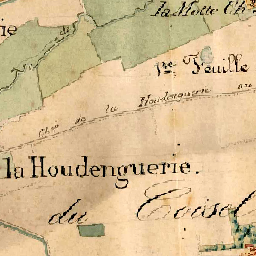 la Motte Ch
ie
1re. Feuille
Chin de la Houdenguerie au
la Houdenguerie.
du Coisel